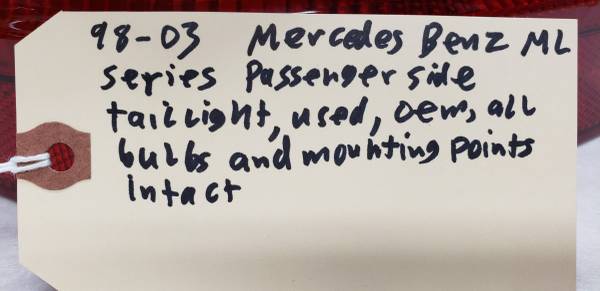 98-03 Mercedes Benz ML
series Passenger side
taillight, used, oem, all
bulbs and mounting points
intact